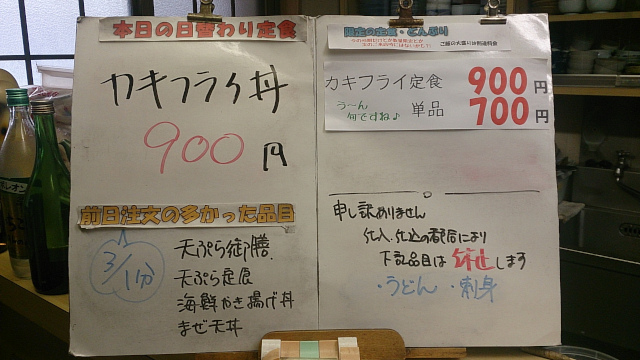 本日の日替わり定食
カキフライ丼
900円
前日注文の多かった品目
3/1分
天ぷら御膳
天ぷら定食
海鮮かき揚げ丼
まぜ天丼
限定の定食・どんぶり
ご飯の大盛りは別途料金
カキフライ定食 900円
う〜ん
旬ですね♪
単品 700円
申し訳ありません
仕入、仕込の都合により
下記品目は休止します
・うどん ・刺身